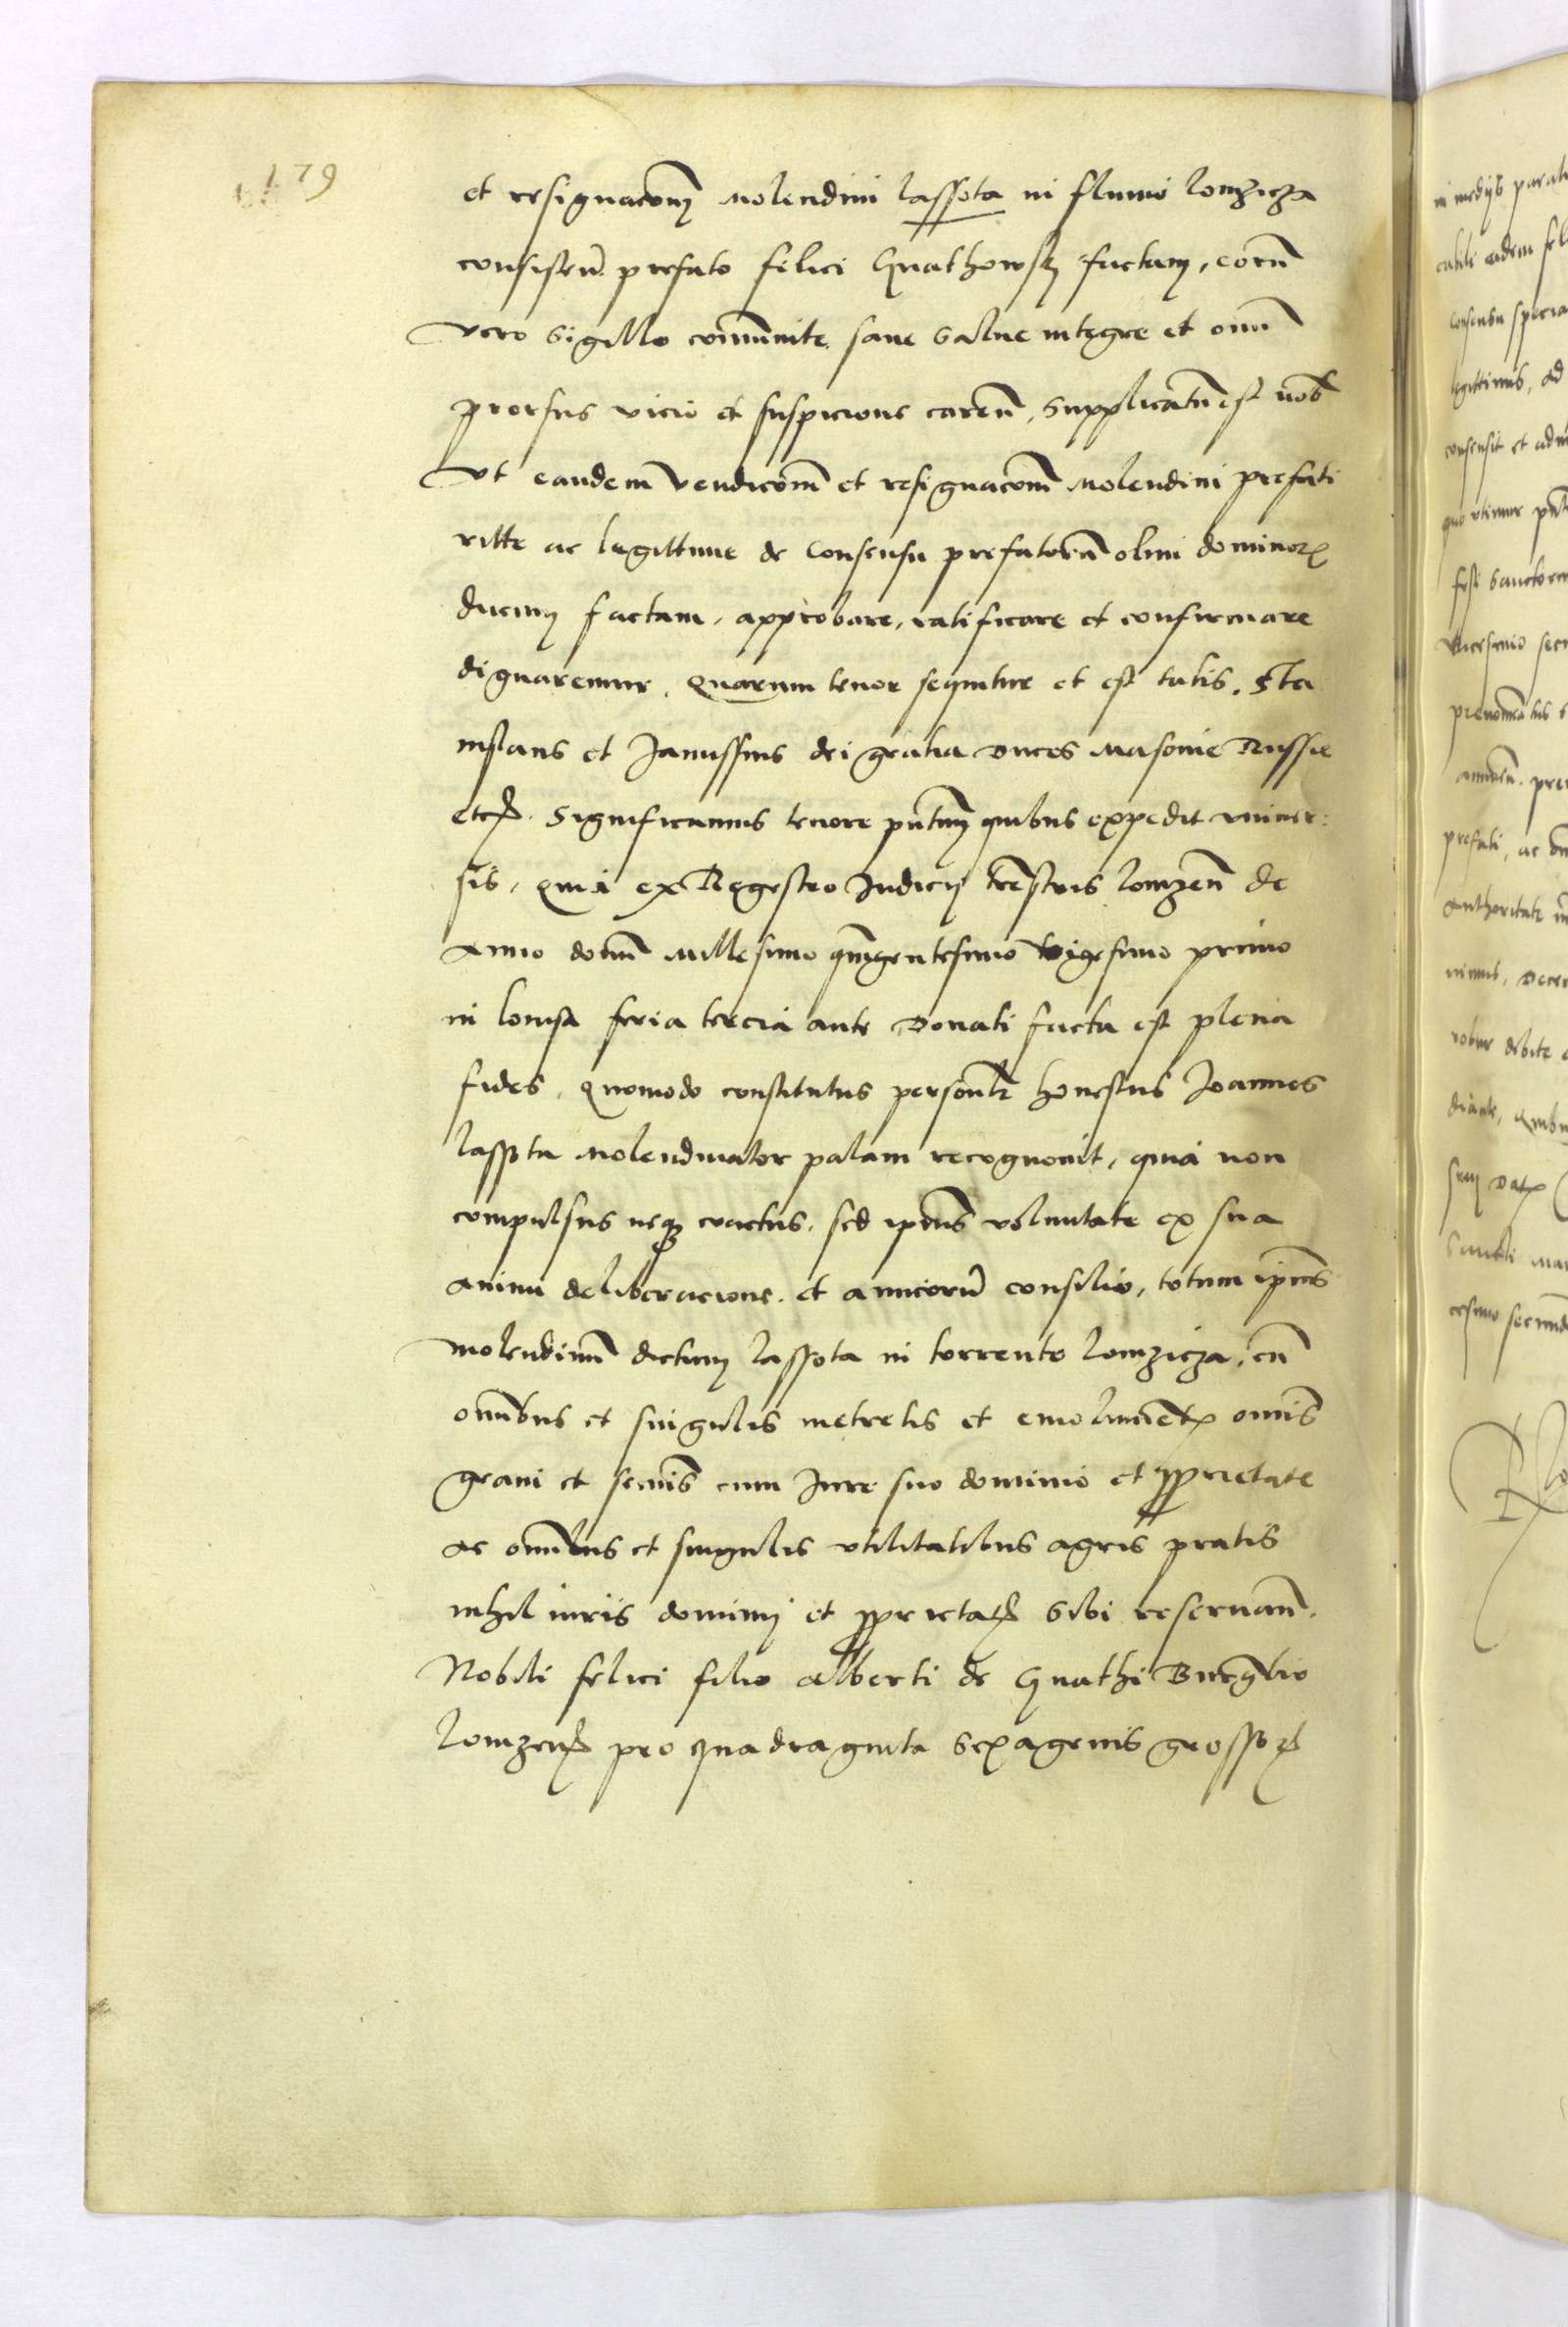 179
et resignacom̄ Molendini lassota in fluuio lomzicza
consisteñ. prefato felici Gnathowsky factam, eorū
vero sigillo cōmunite. sane salue integre et omni
prorsus vicio et suspicione careñ, Supplicatū est nob̄
Vt eandem vendicōm̄ et resignacōm̄ Molendini prefati
ritte ac legittime de Consensu prefatorū olim dominoꝝ
ducum factam, approbare, ratificare et confirmare
dignaremur. Quarum tenor sequitur et est talis. Sta
nislaus et Janussius dei gratia Duces Masouie Russie
etcꝫ. Significamus tenore pn̄tium quibus expedit vniuer:
sis, Quia ex Regestro Iudicij trēstris lomzeñ de
Anno domī Millesimo quīgentesimo vigesimo primo
in lomsa feria tercia ante Donati facta est plena
fides, Quomodo constitutus personlr̄ honestus Joannes
lassota Molendinator palam recognouit, quia non
compulsus neqꝫ coactus, sed ipsius voluntate ex sua
animi deliberacione. et amicorū consilio, totum ipsius
molendinū dictum lassota in torrente lomzicza, cū
omībus et singulis metretis et emolumētꝭ omīs
grani et semīs cum Iure suo dominio et ꝓprietate
ac omībus et singulis vtilitatibus agris pratis
nihil iuris dominij et ꝓprietatꝭ sibi reseruañ.
Nobili felici filio Alberti de Gnathi Burgrabio
lomzenꝭ pro quadraginta sexagenis grossoꝝ
in medijs
eadem
Consensu
legittimis, ad
consensit et
quo vtimur
prefati, ac
authoritate
nimus,
robur debite
diante,